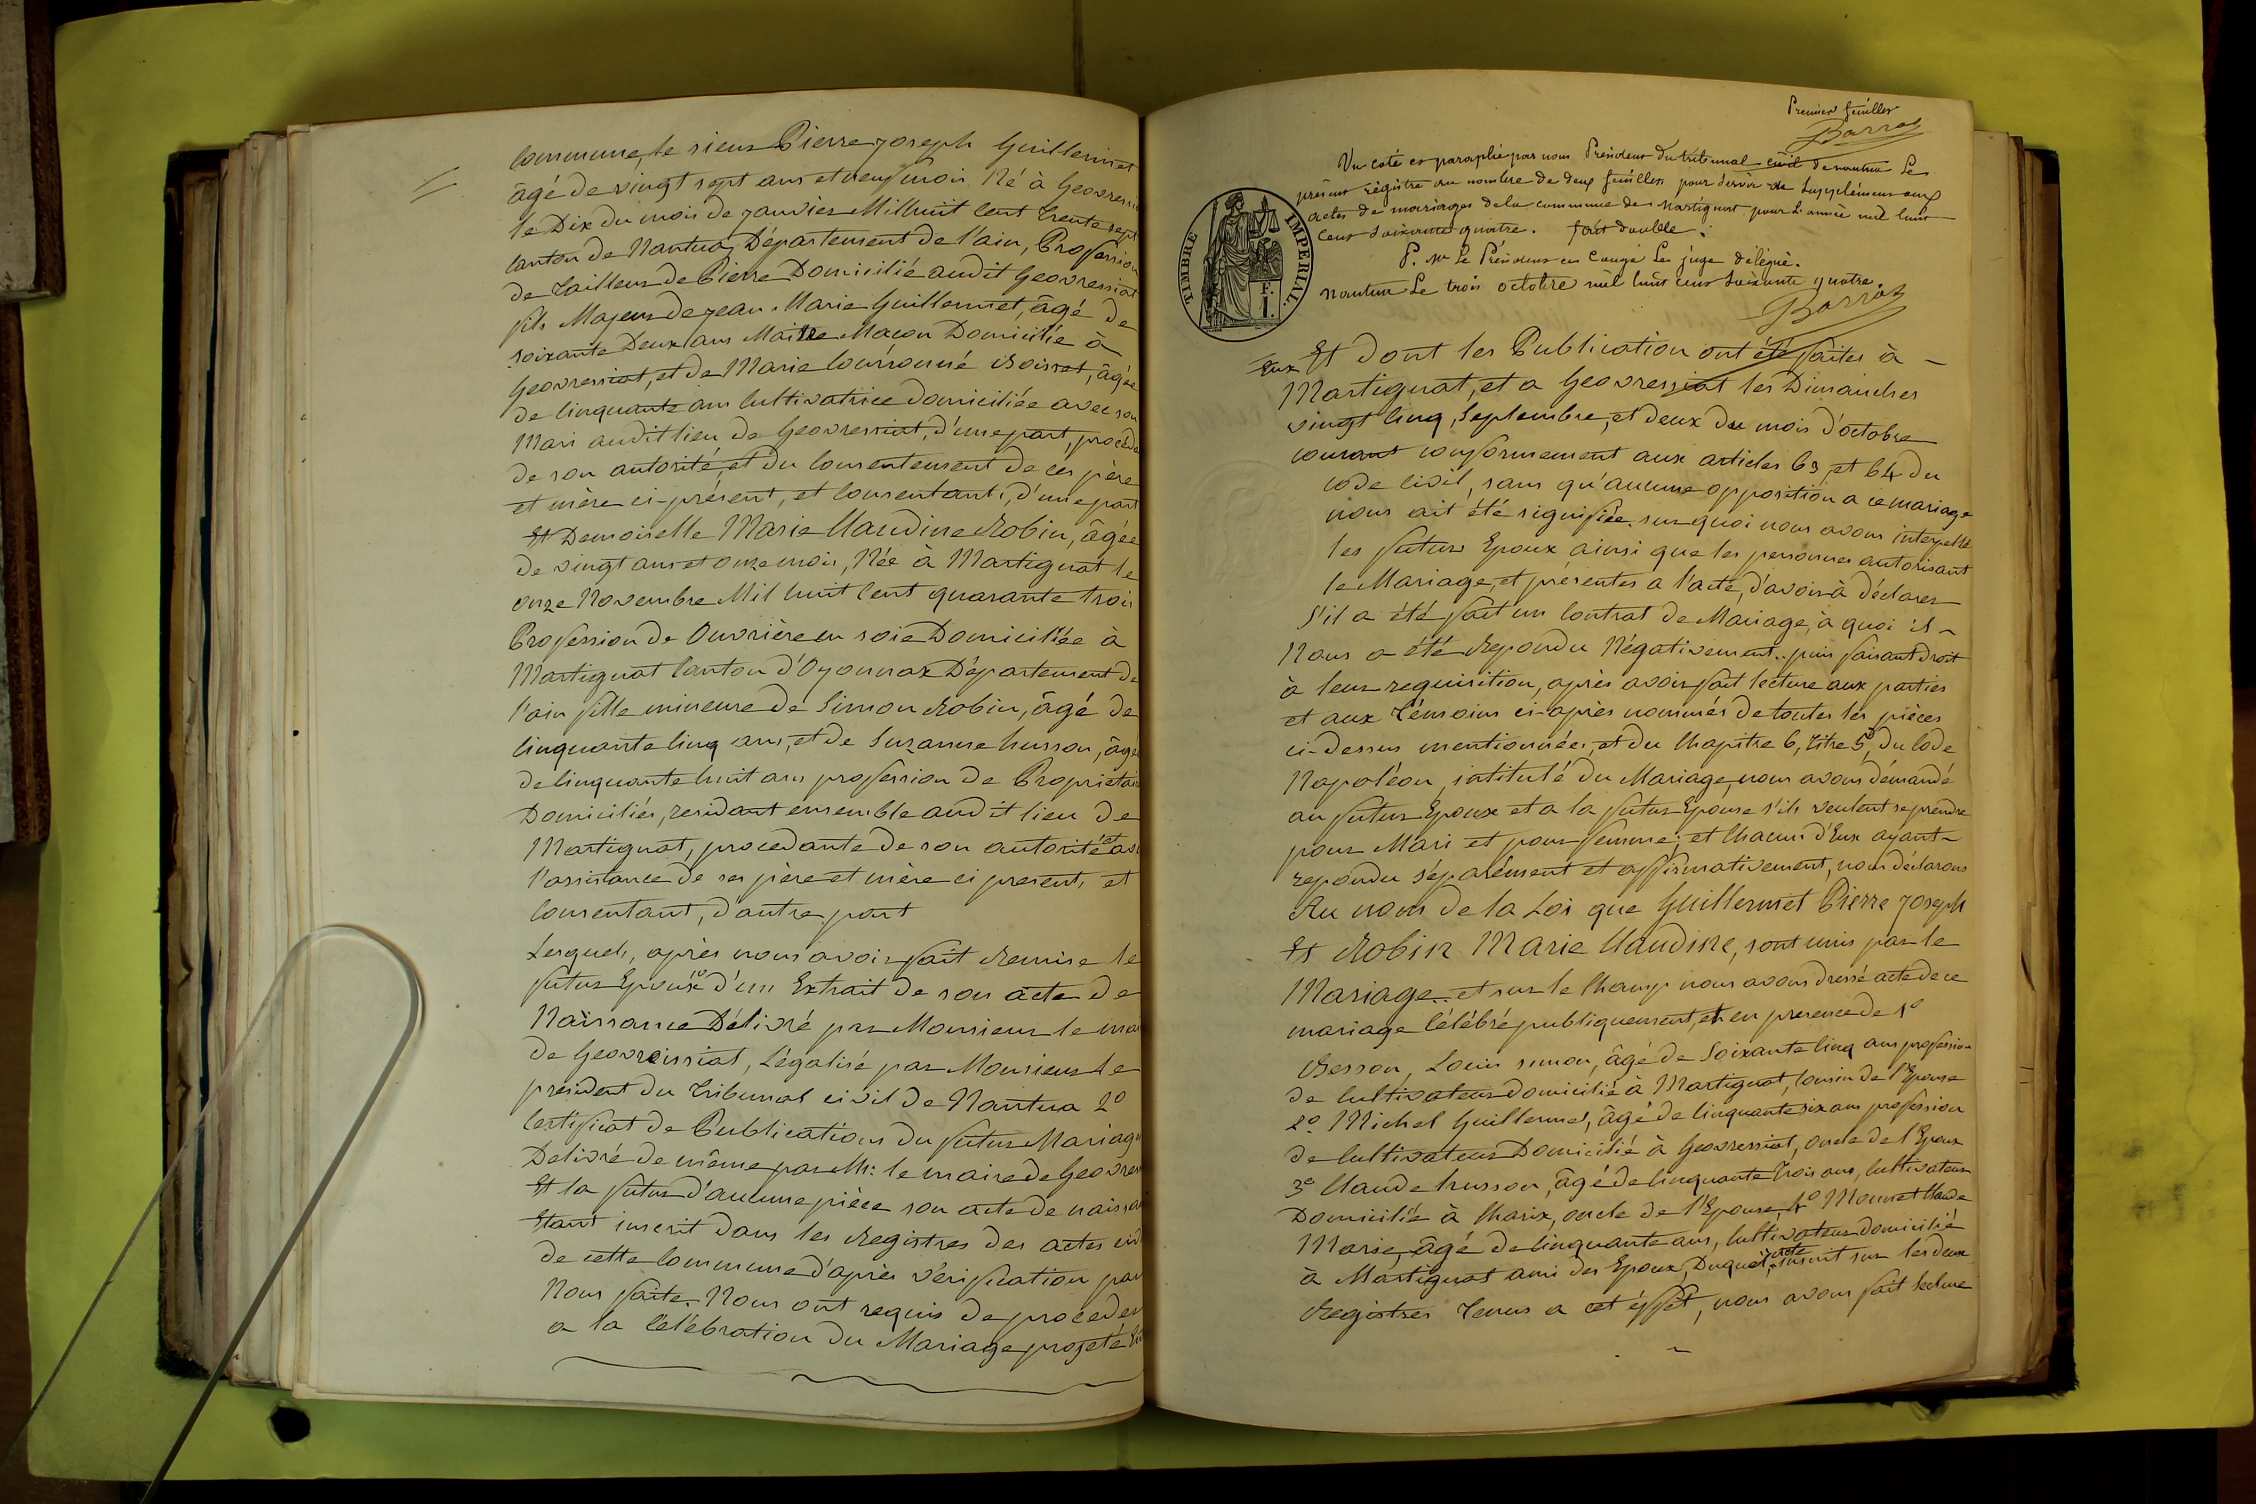 commune, le sieur Pierre joseph Guillermet
âgé de vingt sept ans et neuf mois Né à Geovressi
le Dix du mois de janvier Mil huit Cent trente sept
canton de Nantua, Département de l'ain, Profession
de tailleur de Pierre Domicilié audit Geovressiat
fils Majeur de jean Marie Guillermet, âgé de
soixante Deux ans Maitre Maçon Domicilié à
Geovressiat, et de Marie Couronné Boisset, âgée
de Cinquante ans Cultivatrice domiciliée avec son
Mari audit lieu de Geovressiat, d'une part, procéda
de son autorité, et du Consentement de ces père
et mère ci-présent, et Consentant, d'une part
Et Demoiselle Marie Claudine Robin, âgée
de vingt ans et onze mois, Née à Martignat le
onze Novembre Mil huit Cent quarante trois
Profession de Ouvrière en soie Domiciliée à
Martignat Canton d'Oyonnax Département de
l'ain fille mineure de Simon Robin, âgé de
Cinquante Cinq ans, et de Suzanne husson, âgé
de Cinquante huit ans profession de Propriétair
Domiciliés, residant ensemble audit lieu de
Martignat, procedante de son autorité et as
l'assistance de ses père et mère ci present, et
Consentant, d'autre part
Lesquels, après nous avoir fait Remise le
futur Epoux 1º d'un Extrait de son acte de
Naissance Délivré par Monsieur le mai
de Geovreissiat, Légalisé par Monsieur le
président du Tribunal civil de Nantua 2º
Certificat de Publications du futur Mariage
Delivré de même par Mr: le maire de Geovres
Et la futur d'aucune pièce son acte de naissa
Etant inscrit dans les Registres des actes civ
de cette Commune d'après vérification par
Nous faite. Nous ont requis de proceder
a la Célébration du Mariage projeté
Premier feuillet
Barras
Vu coté et paraphé par nous President du tribunal civil de nantua Le
présent régistre au nombre de deux feuilles pour servir de Supplément aux
actes de mariages de la commune de Martignat pour l'année mil huit
Cent Soixante quatre. fait double.
P. Mr Le Président en Congé Le juge délégué.
Nantua Le trois octobre mil huit cent soixante quatre.
Barras
TIMBRE IMPERIAL.
F.
1.
Eux Et dont les Publication ont été faites à
Martignat, et a Geovressiat les Dimanches
vingt Cinq, Septembre, et deux du mois d'octobre
courant conformement aux articles 63 et 64 du
code Civil, sans qu'aucune opposition a ce mariage
nous ait été signifiée. sur quoi nous avons interpellé
les futurs Epoux ainsi que les personnes autorisant
le Mariage, et présentes a l'acte, d'avoir à déclarer
S'il a été fait un Contrat de Mariage, à quoi il
Nous a été Repondu Négativement.. puis faisant droit
à leur requisition, après avoir fait lecture aux parties
et aux Témoins ci-après nommés de toutes les pièces
ci-dessus mentionnées, et du Chapitre 6, titre 5, du Code
Napoléon, intitulé du Mariage, nous avons démandé
au futur Epoux et a la futur Epouse s'ils veulent se prendre
pour Mari et pour femme, et Chacun d'Eux ayant
repondu séparément et affirmativement, nous déclarons
Au nom de la Loi que Guillermet Pierre joseph
Et Robin Marie Claudine, sont unis par le
Mariage.. et sur le Champ nous avons dressé acte de ce
mariage Célébré publiquement, et en presence de 1º
Besson, Louis simon, âgé de Soixante Cinq ans profession
de Cultivateur domicilié à Martignat, Cousin de l'Epouse
2º Michel Guillermet, âgé de Cinquante six ans profession
de Cultivateur Domicilié à Geovressiat, oncle de l'Epoux
3º Claude husson, âgé de Cinquante Trois ans, Cultivateur
Domicilié à Charix, oncle de l'Epouse, 4º Monnet Claude
Marie, âgé de Cinquante ans, Cultivateur domicilié
à Martignat ami des Epoux, Duquel acte inscrit sur les deux
Registres Tenus a cet effet, nous avons fait lecture